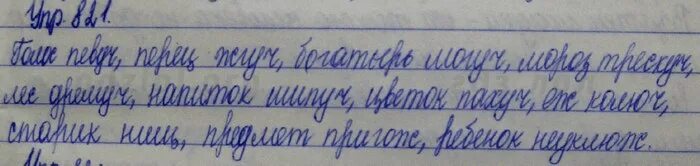 Упр. 821.
Голос певуч, перец жгуч, богатырь могуч, мороз трескуч,
лес дремуч, напиток шипуч, цветок пахуч, еж колюч,
старик нищ, предмет пригож, ребенок неуклюж.